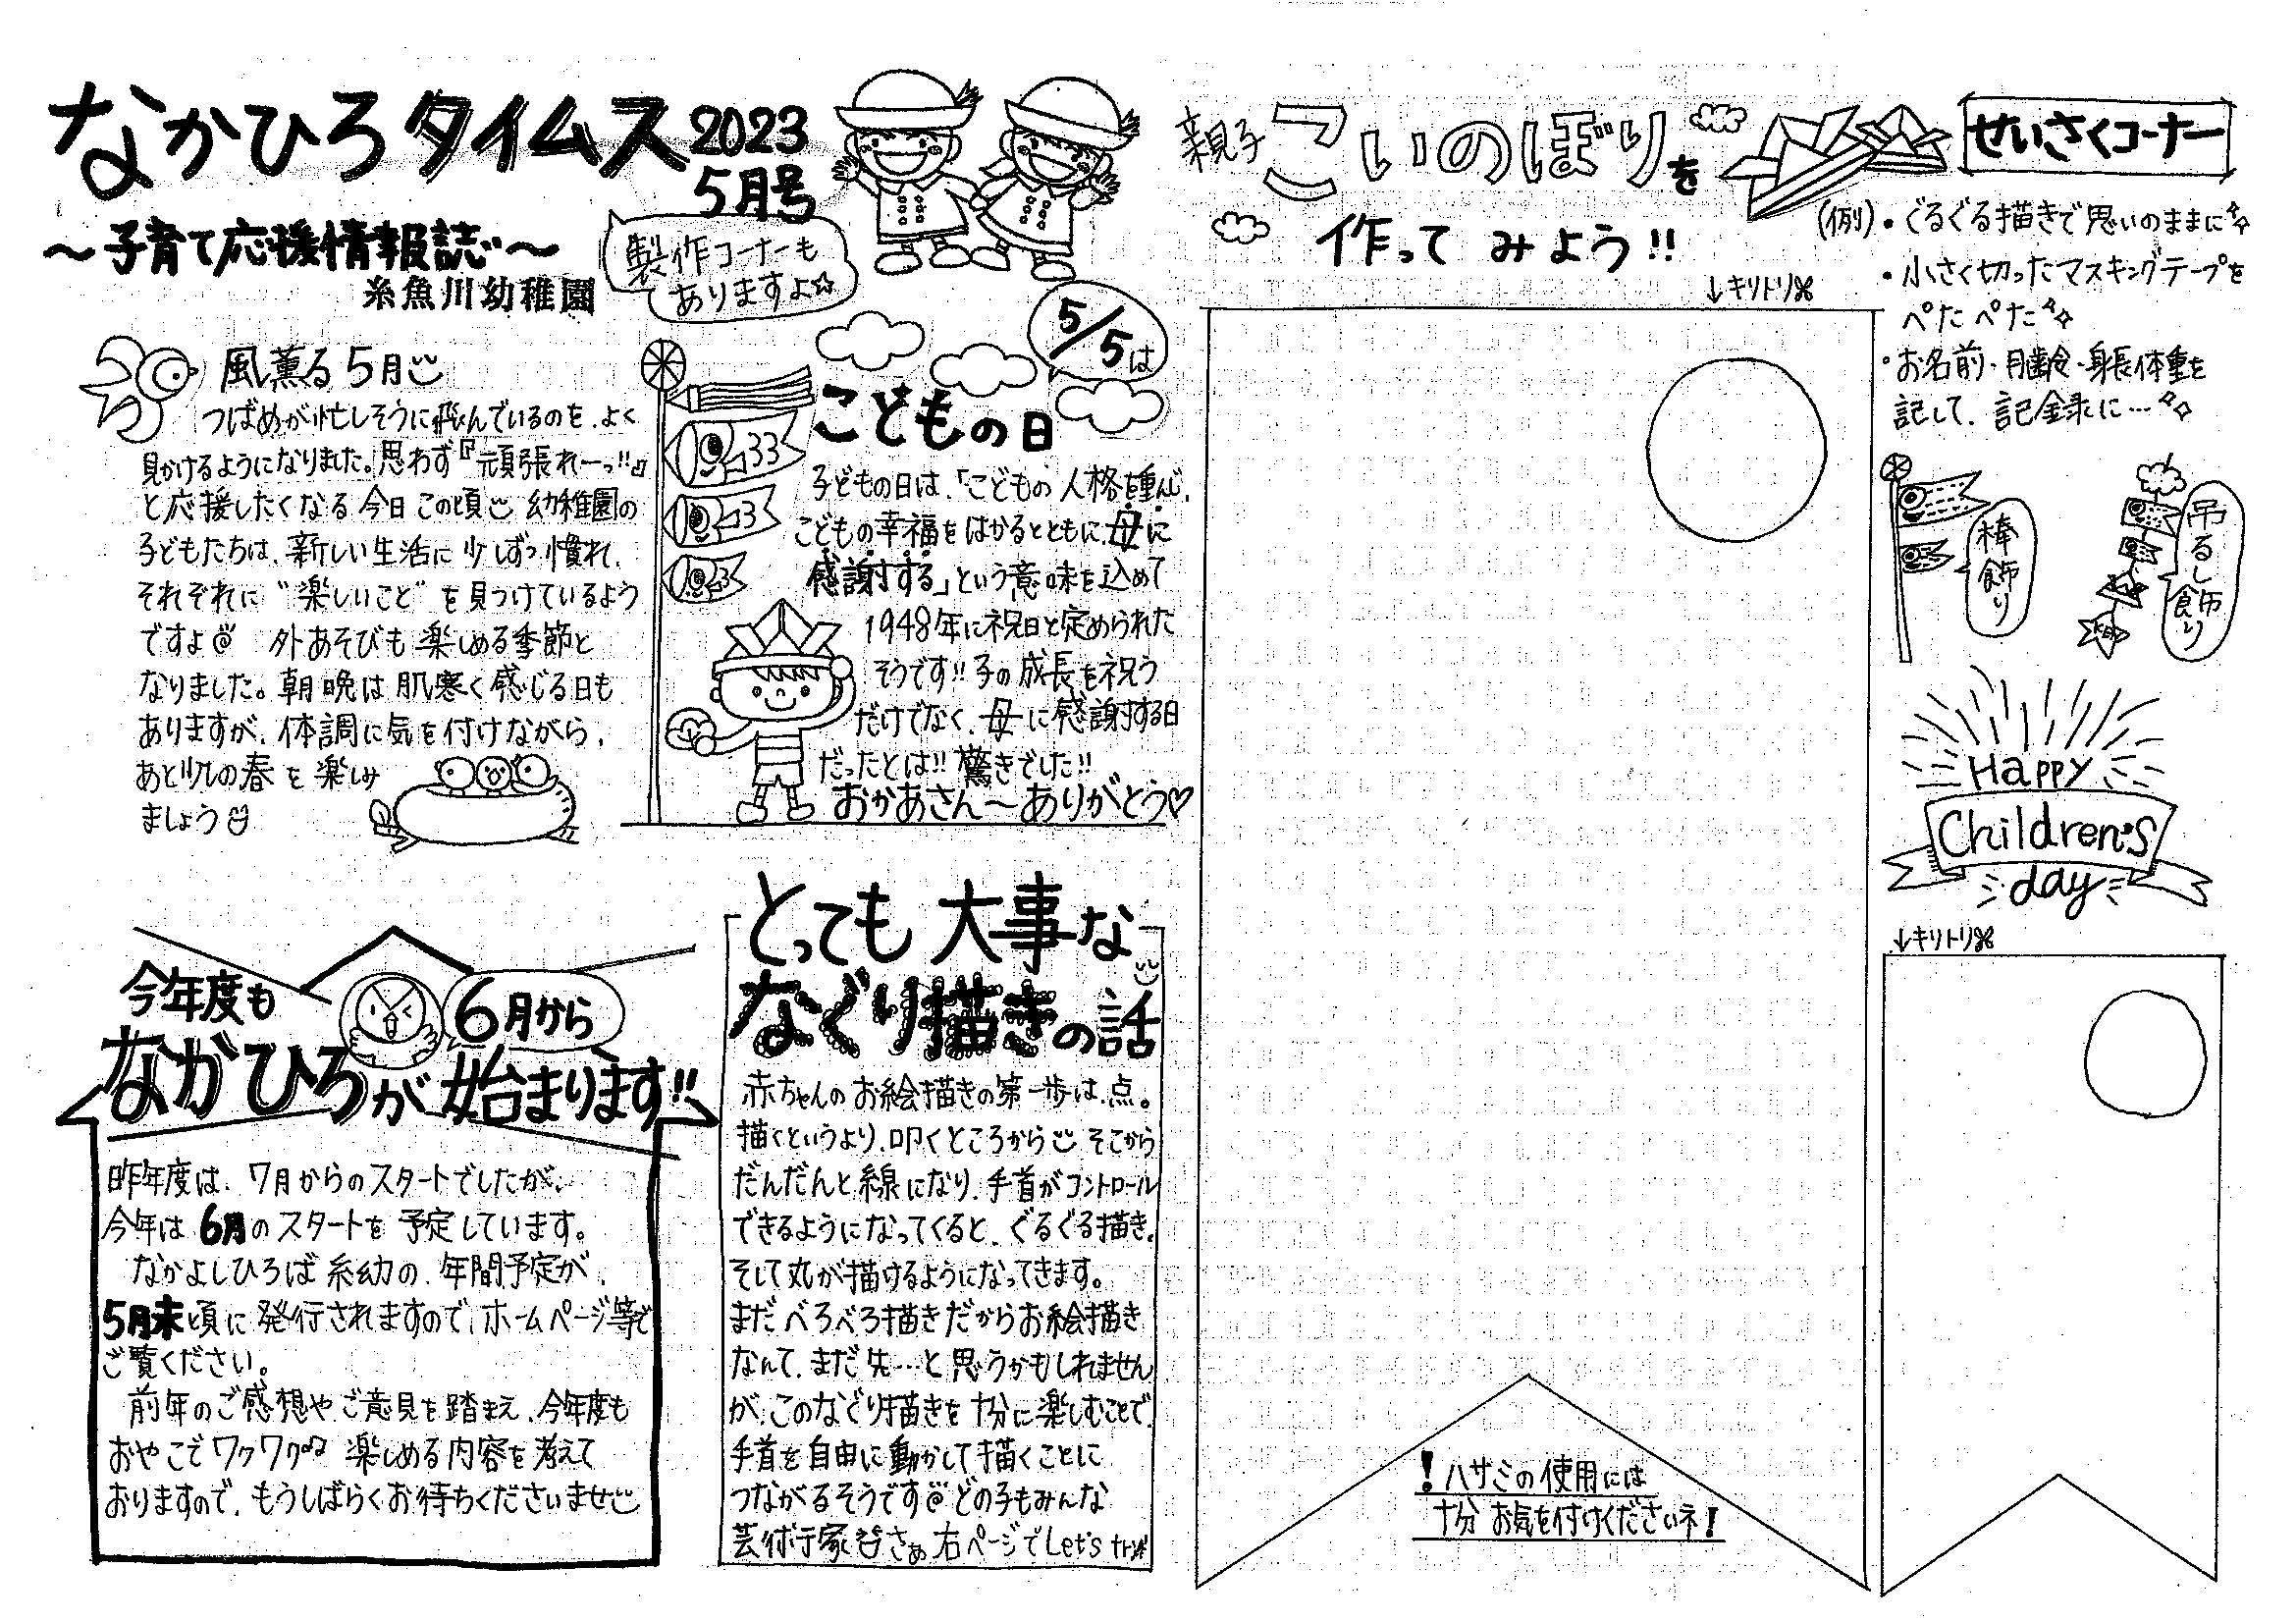 なかひろタイムス 2023
5月号
～子育て応援情報誌～
糸魚川幼稚園
製作コーナーも
ありますよ☆
風薫る5月
つばめが忙しそうに飛んでいるのを、よく
見かけるようになりました。思わず『頑張れーっ!!』
と応援したくなる今日この頃 幼稚園の
子どもたちは、新しい生活に少しずつ慣れ、
それぞれに"楽しいこと"を見つけているよう
ですよ 外あそびも楽しめる季節と
なりました。朝晩は肌寒く感じる日も
ありますが、体調に気を付けながら、
あと少しの春を楽しみ
ましょう
5/5は
こどもの日
子どもの日は、「こどもの人格を重んじ、
こどもの幸福をはかるとともに、母に
感謝する」という意味を込めて
1948年に祝日と定められた
そうです!! 子の成長を祝う
だけでなく、母に感謝する日
だったとは!! 驚きでした!!
おかあさん～ありがとう♡
今年度も
6月から
なかひろが始まります!!
昨年度は、7月からのスタートでしたが、
今年は6月のスタートを予定しています。
なかよしひろば糸幼の、年間予定が、
5月末頃に発行されますので、ホームページ等で
ご覧ください。
前年のご感想やご意見を踏まえ、今年度も
おやこでワクワク♫楽しめる内容を考えて
おりますので、もうしばらくお待ちくださいませ
とっても大事な
なぐり描きの話
赤ちゃんのお絵描きの第一歩は、点。
描くというより、叩くところから そこから
だんだんと線になり、手首がコントロール
できるようになってくると、ぐるぐる描き、
そして丸が描けるようになってきます。
まだべろべろ描きだからお絵描き
なんて、まだ先…と思うかもしれません
が、このなぐり描きを十分に楽しむことで、
手首を自由に動かして描くことに
つながるそうです どの子もみんな
芸術家 さぁ右ページでLet's try
親子こいのぼりを
作ってみよう!!
せいさくコーナー
(例)・ぐるぐる描きで思いのままに
・小さく切ったマスキングテープを
ぺたぺた
・お名前・月齢・身長体重を
記して、記念に…
↓キリトリ
棒飾り
吊るし飾り
Happy
Children's
day
↓キリトリ
!ハサミの使用には
十分お気を付けくださいネ!